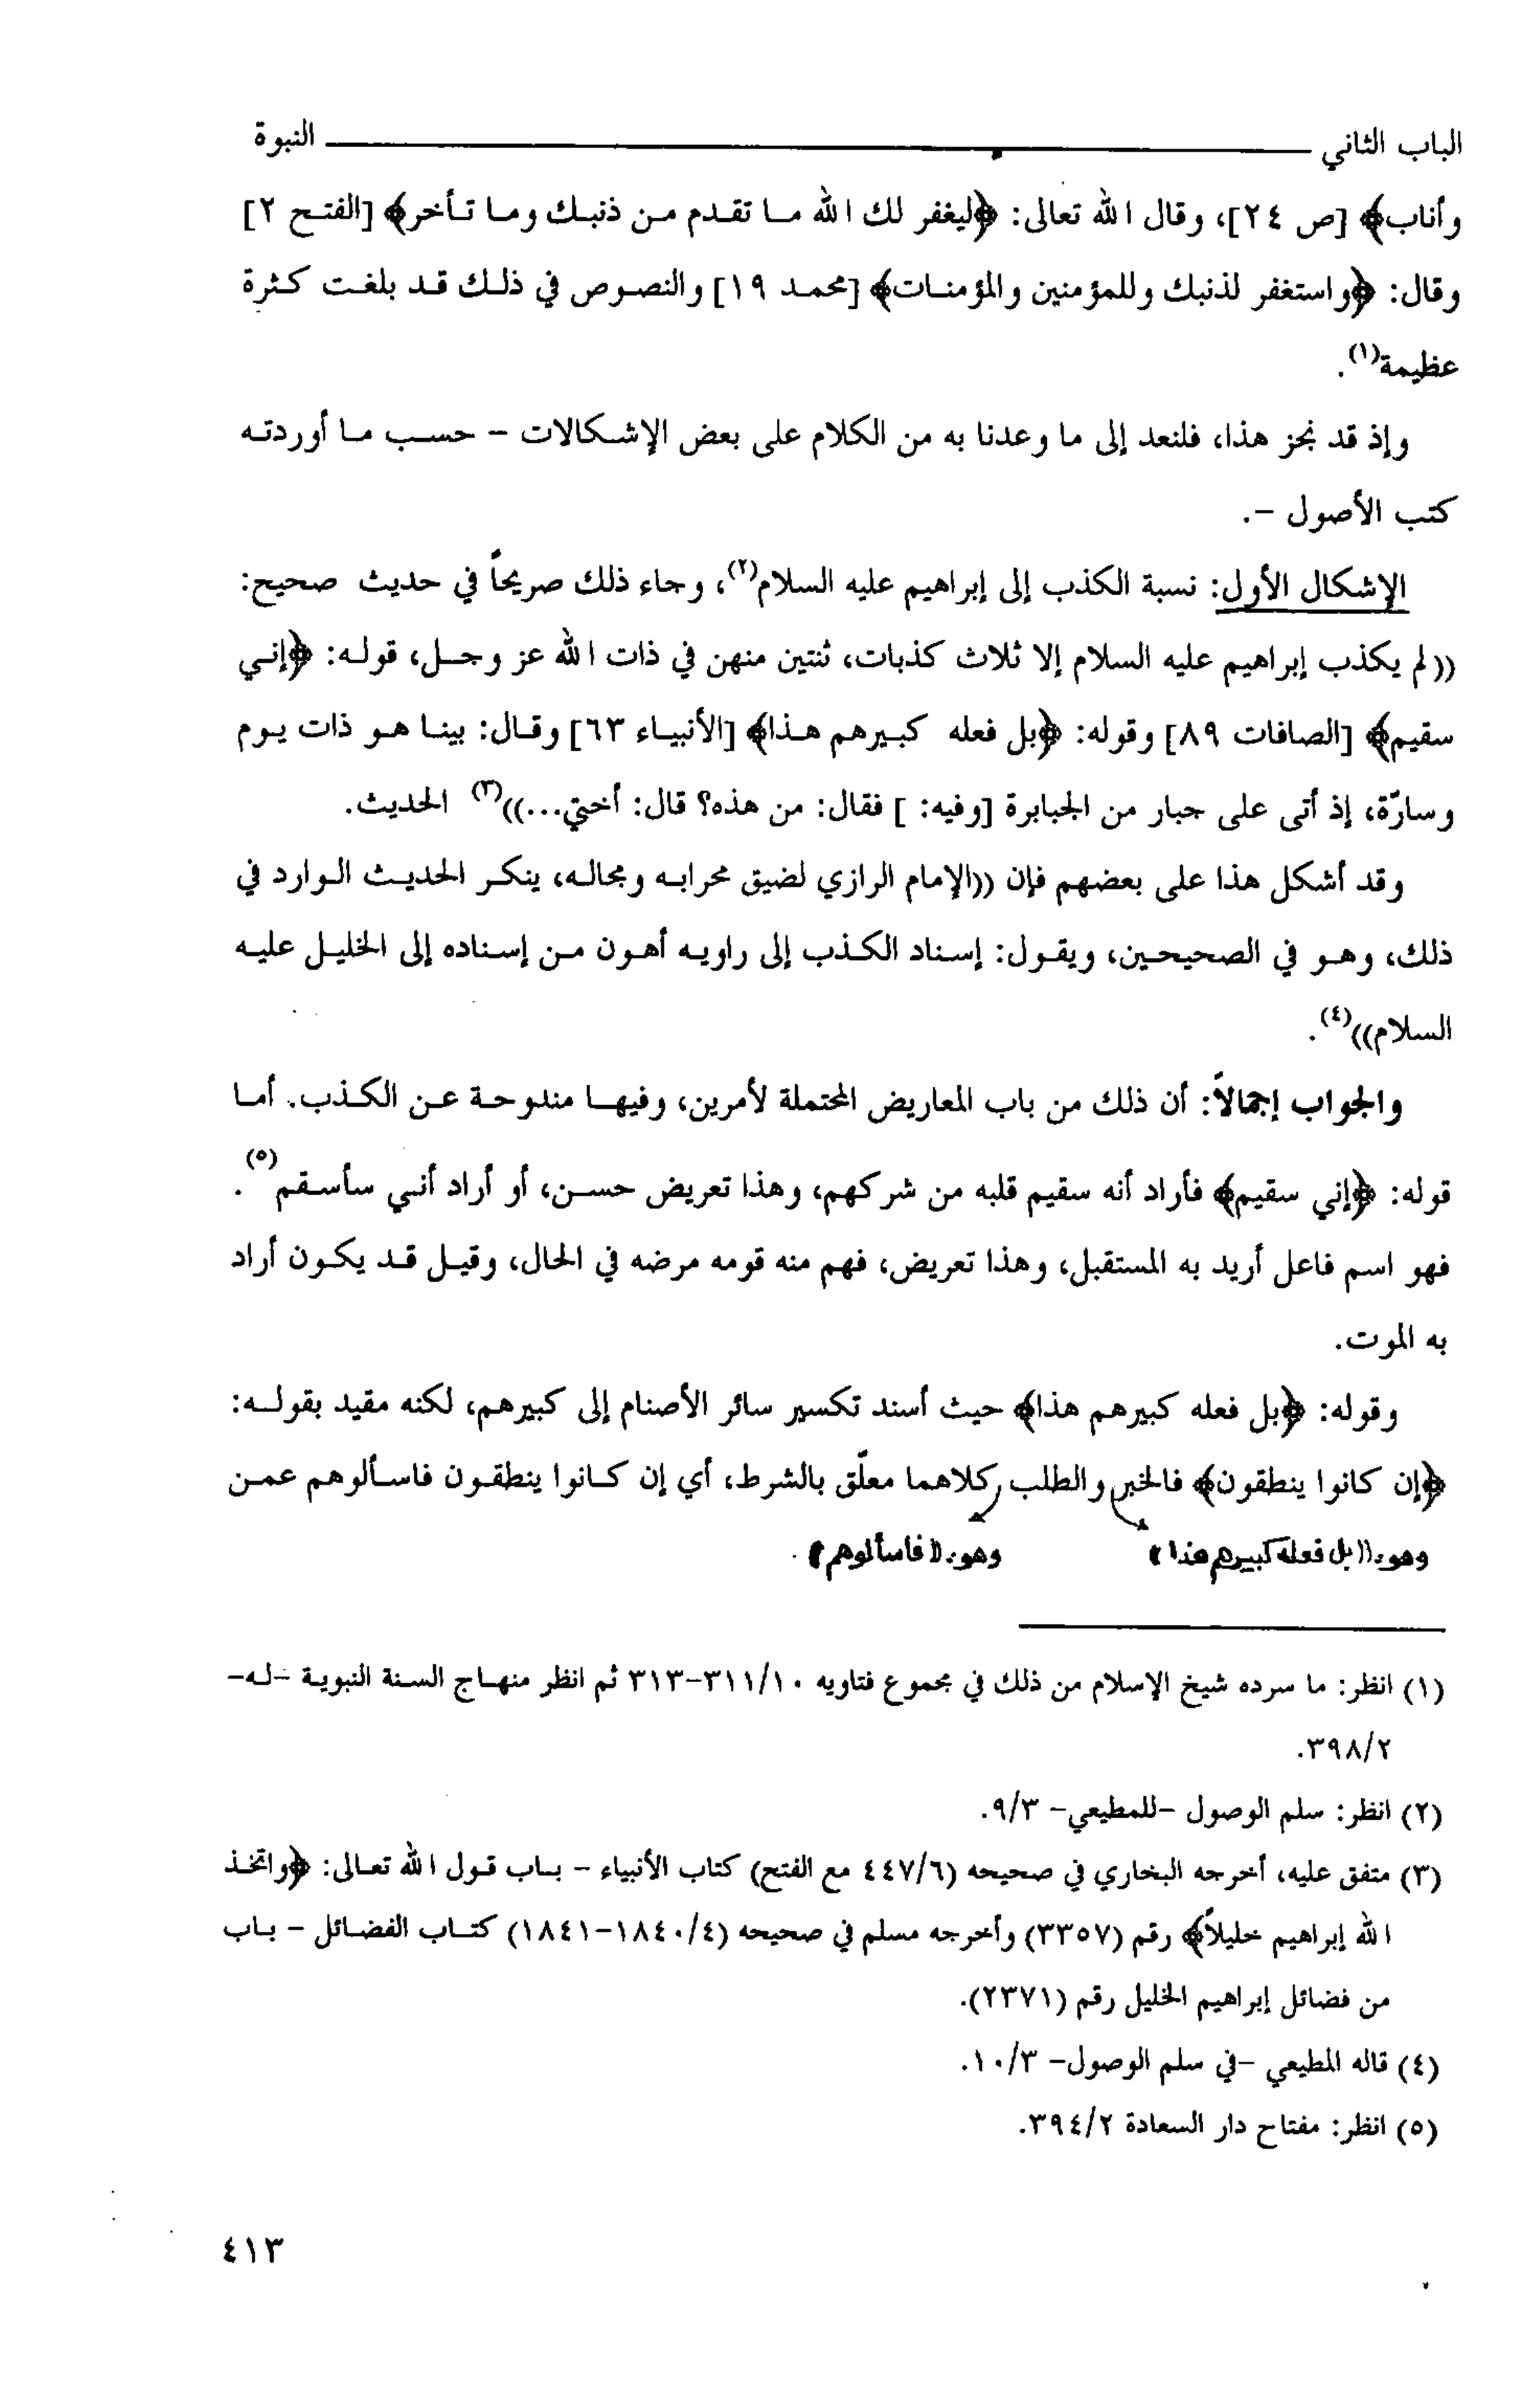 الباب الثاني ــــــــــ النبوة
وأناب﴾ [ص ٢٤]، وقال الله تعالى: ﴿ليغفر لك الله ما تقدم من ذنبك وما تأخر﴾ [الفتح ٢]
وقال: ﴿واستغفر لذنبك وللمؤمنين والمؤمنات﴾ [محمد ١٩] والنصوص في ذلك قد بلغت كثرة
عظيمة(١).
وإذ قد نجز هذا، فلنعد إلى ما وعدنا به من الكلام على بعض الإشكالات - حسب ما أوردته
كتب الأصول -.
الإشكال الأول: نسبة الكذب إلى إبراهيم عليه السلام(٢)، وجاء ذلك صريحاً في حديث صحيح:
((لم يكذب إبراهيم عليه السلام إلا ثلاث كذبات، ثنتين منهن في ذات الله عز وجل، قوله: ﴿إني
سقيم﴾ [الصافات ٨٩] وقوله: ﴿بل فعله كبيرهم هذا﴾ [الأنبياء ٦٣] وقال: بينا هو ذات يوم
وسارّة، إذ أتى على جبار من الجبابرة [وفيه: ] فقال: من هذه؟ قال: أختي...))(٣) الحديث.
وقد أشكل هذا على بعضهم فإن ((الإمام الرازي لضيق محرابه ومجاله، ينكر الحديث الوارد في
ذلك، وهو في الصحيحين، ويقول: إسناد الكذب إلى راويه أهون من إسناده إلى الخليل عليه
السلام))(٤).
والجواب إجمالاً: أن ذلك من باب المعاريض المحتملة لأمرين، وفيها مندوحة عن الكذب. أما
قوله: ﴿إني سقيم﴾ فأراد أنه سقيم قلبه من شركهم، وهذا تعريض حسن، أو أراد أني سأسقم(٥).
فهو اسم فاعل أريد به المستقبل، وهذا تعريض، فهم منه قومه مرضه في الحال، وقيل قد يكون أراد
به الموت.
وقوله: ﴿بل فعله كبيرهم هذا﴾ حيث أسند تكسير سائر الأصنام إلى كبيرهم، لكنه مقيد بقوله:
﴿إن كانوا ينطقون﴾ فالخبر والطلب كلاهما معلّق بالشرط، أي إن كانوا ينطقون فاسألوهم عمن
وهو: ((بل فعله كبيرهم هذا)) وهو: ((فاسألوهم))
(١) انظر: ما سرده شيخ الإسلام من ذلك في مجموع فتاويه ٣١١/١٠-٣١٣ ثم انظر منهاج السنة النبوية -له-
٣٩٨/٢.
(٢) انظر: سلم الوصول -للمطيعي- ٩/٣.
(٣) متفق عليه، أخرجه البخاري في صحيحه (٤٤٧/٦ مع الفتح) كتاب الأنبياء - باب قول الله تعالى: ﴿واتخذ
الله إبراهيم خليلاً﴾ رقم (٣٣٥٧) وأخرجه مسلم في صحيحه (١٨٤٠/٤-١٨٤١) كتاب الفضائل - باب
من فضائل إبراهيم الخليل رقم (٢٣٧١).
(٤) قاله المطيعي -في سلم الوصول- ١٠/٣.
(٥) انظر: مفتاح دار السعادة ٣٩٤/٢.
٤١٣